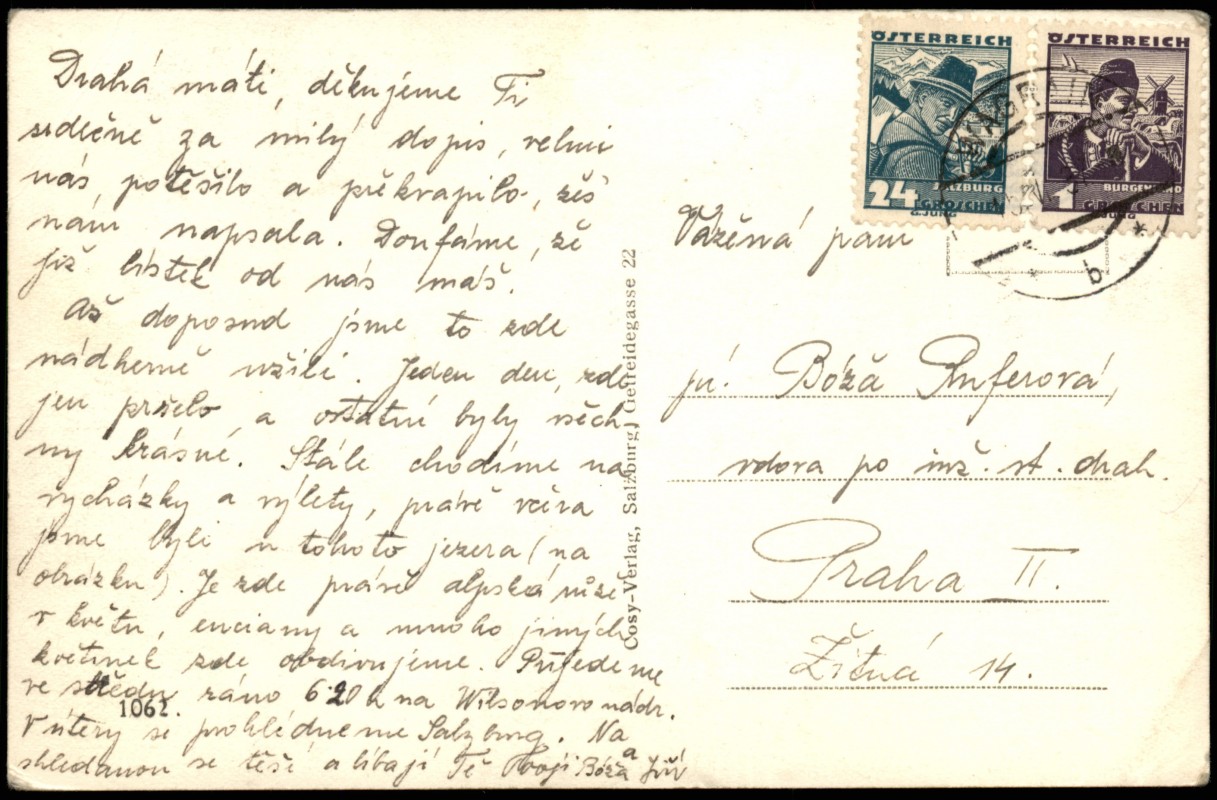 Drahá máti, děkujeme Ti
srdečně za milý dopis, velmi
nás potěšilo a překvapilo, žeš
nám napsala. Doufáme, že
již lístek od nás máš.
Až doposud jsme to zde
nádherně užili. Jeden den, zde
jen pršelo a ostatní byly všech
ny krásné. Stále chodíme na
vycházky a výlety, právě včera
jsme byli u tohoto jezera (na
obrázku). Je zde právě alpská růže
v květu, enciany a mnoho jiných
květinek zde obdivujeme. Přijedeme
ve středu ráno 6 20 h na Wilsonovo nádr.
1062.
V úterý si prohlédneme Salzburg. Na
shledanou se těší a líbají Tě Tvoji Bóža a Jiří
Cosy-Verlag, Salzburg, Getreidegasse 22
ÖSTERREICH
24 SALZBURG
GROSCHEN
ÖSTERREICH
1 BURGENLAND
GROSCHEN
* b *
Vážená paní
pí. Bóža Ruferová,
vdova po inž. st. drah.
Praha II.
Žitná 14.